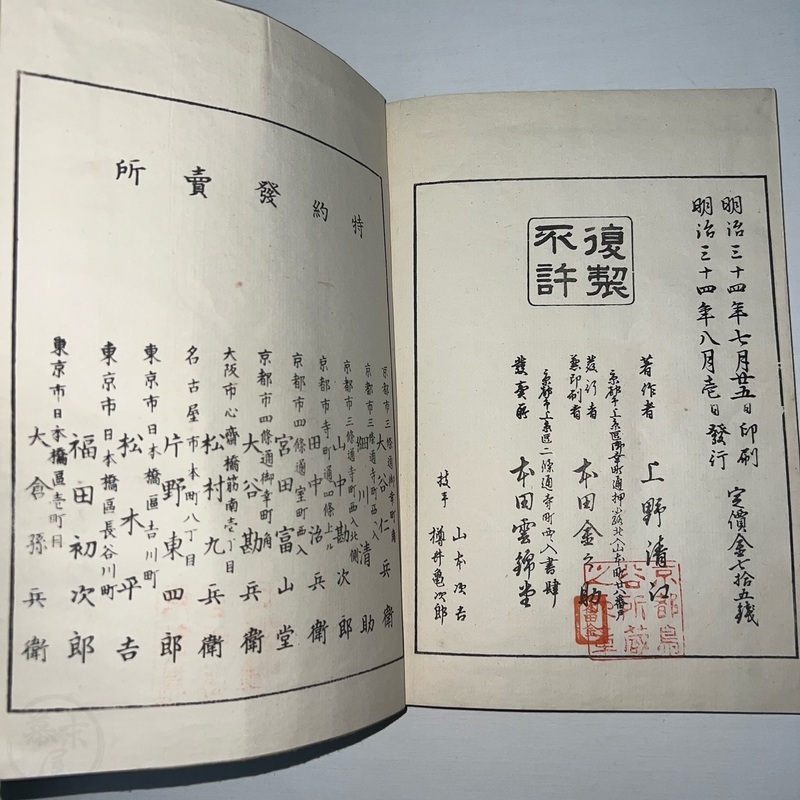 明治三十四年七月廿五日印刷
明治三十四年八月壱日發行
定價金七拾五錢
復製
不許
著作者
上野清江
京都市上京區御幸町通押小路北入山本町廿八番戶
發行者
兼印刷者
本田金之助
京都市上京區二條通寺町西入書肆
發賣所
本田雲錦堂
技手
山本次吉
樽井亀次郎
特約發賣所
京都市三條通御幸町角
大谷仁兵衛
京都市三條通寺町西入
細川清助
京都市三條通寺町西入北側
山中勘次郎
京都市寺町通四條上ル
田中治兵衛
京都市四條通室町西入
宮田富山堂
京都市四條通御幸町角
大谷勘兵衛
大阪市心齋橋筋南壱丁目
松村九兵衛
名古屋市本町八丁目
片野東四郎
東京市日本橋區吉川町
松木平吉
東京市日本橋區長谷川町
福田初次郎
東京市日本橋區壱町目
大倉孫兵衛